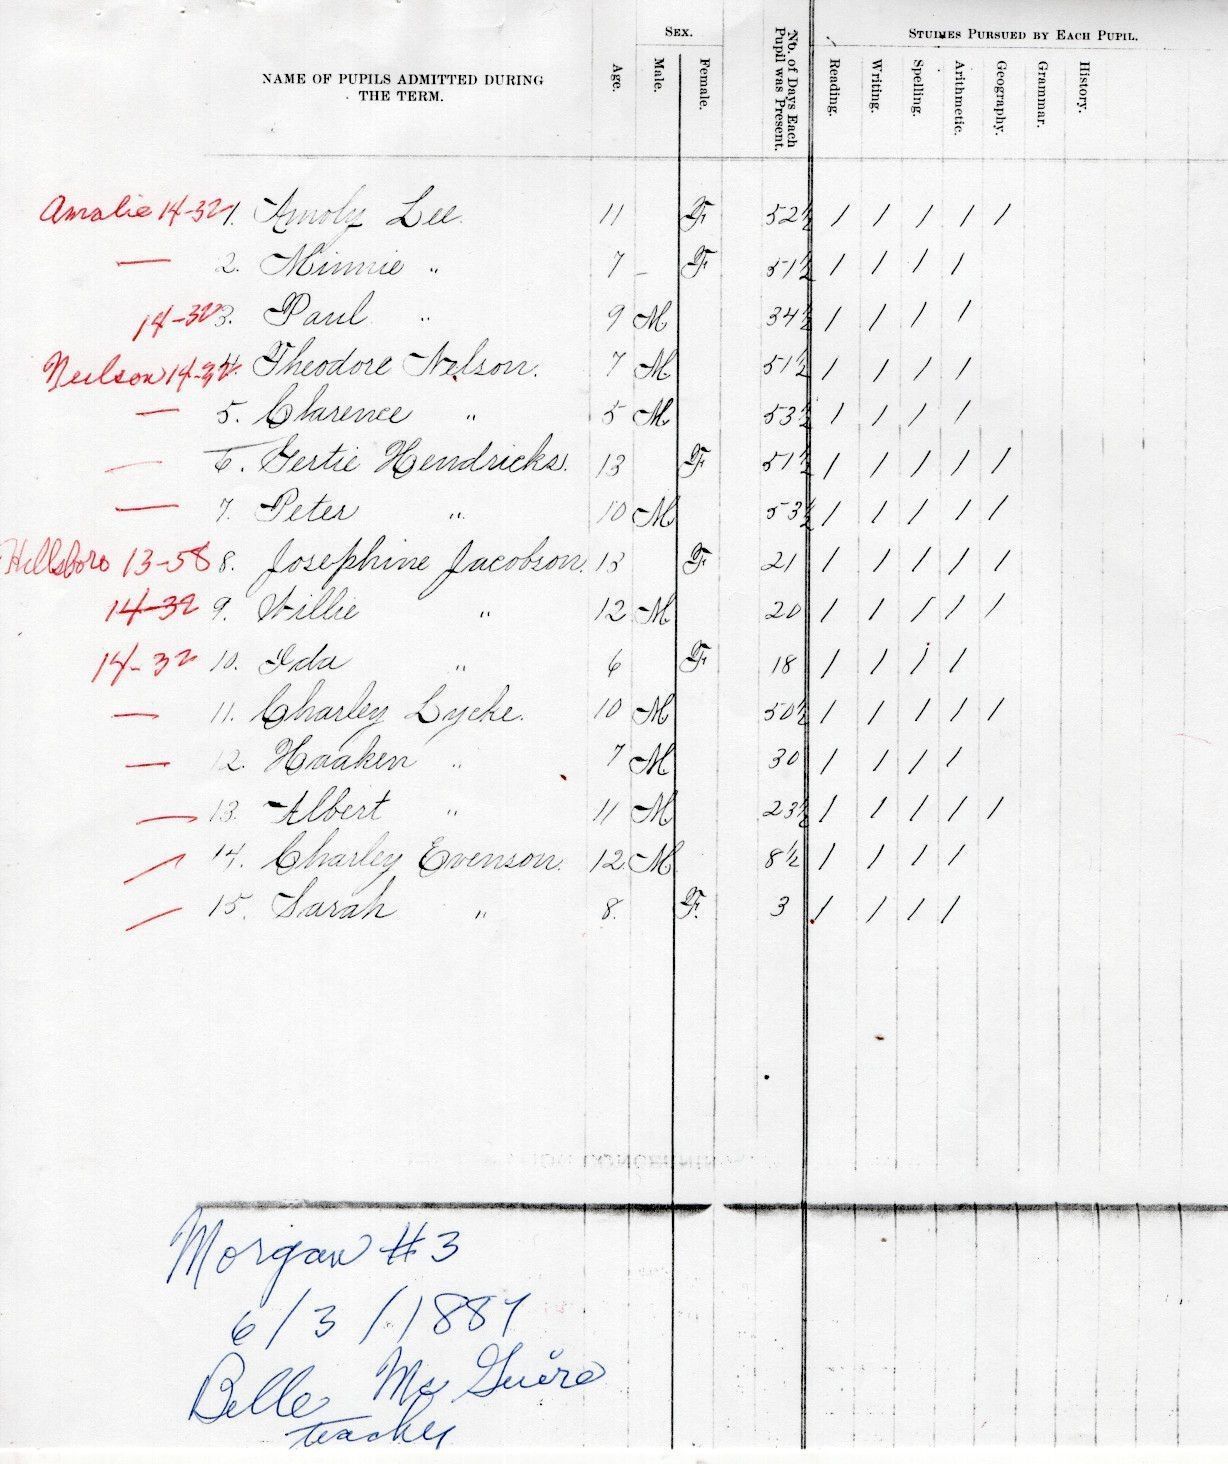 SEX.
STUDIES PURSUED BY EACH PUPIL.
NAME OF PUPILS ADMITTED DURING THE TERM.
Age.
Male.
Female.
No. of Days Each Pupil was Present.
Reading.
Writing.
Spelling.
Arithmetic.
Geography.
Grammar.
History.
Amalie 14-32 1. Amoly Lee. 11 F 52½ / / / / /
— 2. Minnie " 7 - F 51½ / / / /
14-32 3. Paul " 9 M 34½ / / / /
Neilson 14-32 4. Theodore Nelson. 7 M 51½ / / / /
— 5. Clarence " 5 M 53½ / / / /
— 6. Gertie Hendricks. 13 F 51½ / / / / /
— 7. Peter " 10 M 53½ / / / / /
Hillsboro 13-58 8. Josephine Jacobson. 13 F 21 / / / / /
14-32 9. Willie " 12 M 20 / / / / /
14-32 10. Ida " 6 F 18 / / / /
— 11. Charley Lycke. 10 M 50½ / / / / /
— 12. Haaken " 7 M 30 / / / /
— 13. Albert " 11 M 23½ / / / / /
— 14. Charley Evenson. 12 M 8½ / / / /
— 15. Sarah " 8. F. 3 / / / /
Morgan #3
6/3/1887
Belle Mc Guire
teacher